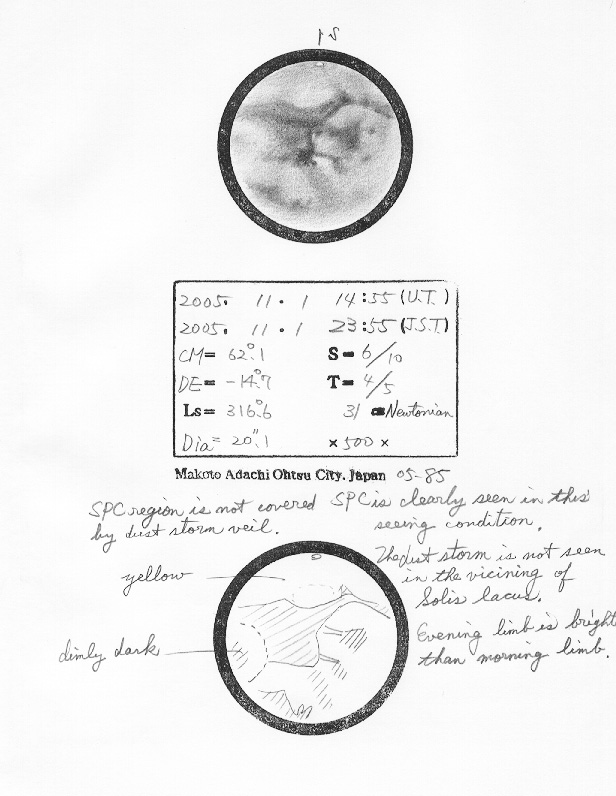 2005. 11. 1 14:55 (U.T.)
2005. 11. 1 23:55 (J.S.T)
CM= 62°.1 S= 6/10
DE= -14°.7 T= 4/5
Ls= 316°.6 31 Newtonian
Dia= 20".1 ×500×
Makoto Adachi Ohtsu City. Japan 05-85
SPC region is not covered
by dust storm veil.
SPC is clearly seen in this
seeing condition.
The dust storm is not seen
in the vicining of
Solis lacus.
Evening limb is bright
than morning limb.
yellow
dimly dark